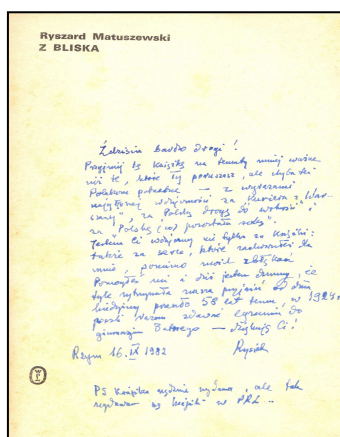 Ryszard Matuszewski
Z BLISKA
Zdzisiu bardzo drogi!
Przyjmij tę książkę na tematy mniej ważne
niż te, które Ty poruszasz, ale chyba też
Polakom potrzebne — z wyrazami
najgłębszej wdzięczności za "Kuriera z War-
szawy", za "Polską drogę do wolności" i
za "Polskę (co) pozostała sobą".
Jestem Ci wdzięczny nie tylko za książki:
także za serce, które zachowałeś dla
mnie, pomimo moich
Pomogłeś mi i dziś jestem dumny, że
tyle wytrzymała nasza przyjaźń od dnia
kiedyśmy ponad 58 lat temu, w 1924 r.
poszli razem zdawać egzamin do
gimnazjum Batorego — dziękuję Ci!
Rzym 16.IX 1982 Rysiek
PS Książka wydana, ale tak
wydawano w PRL...